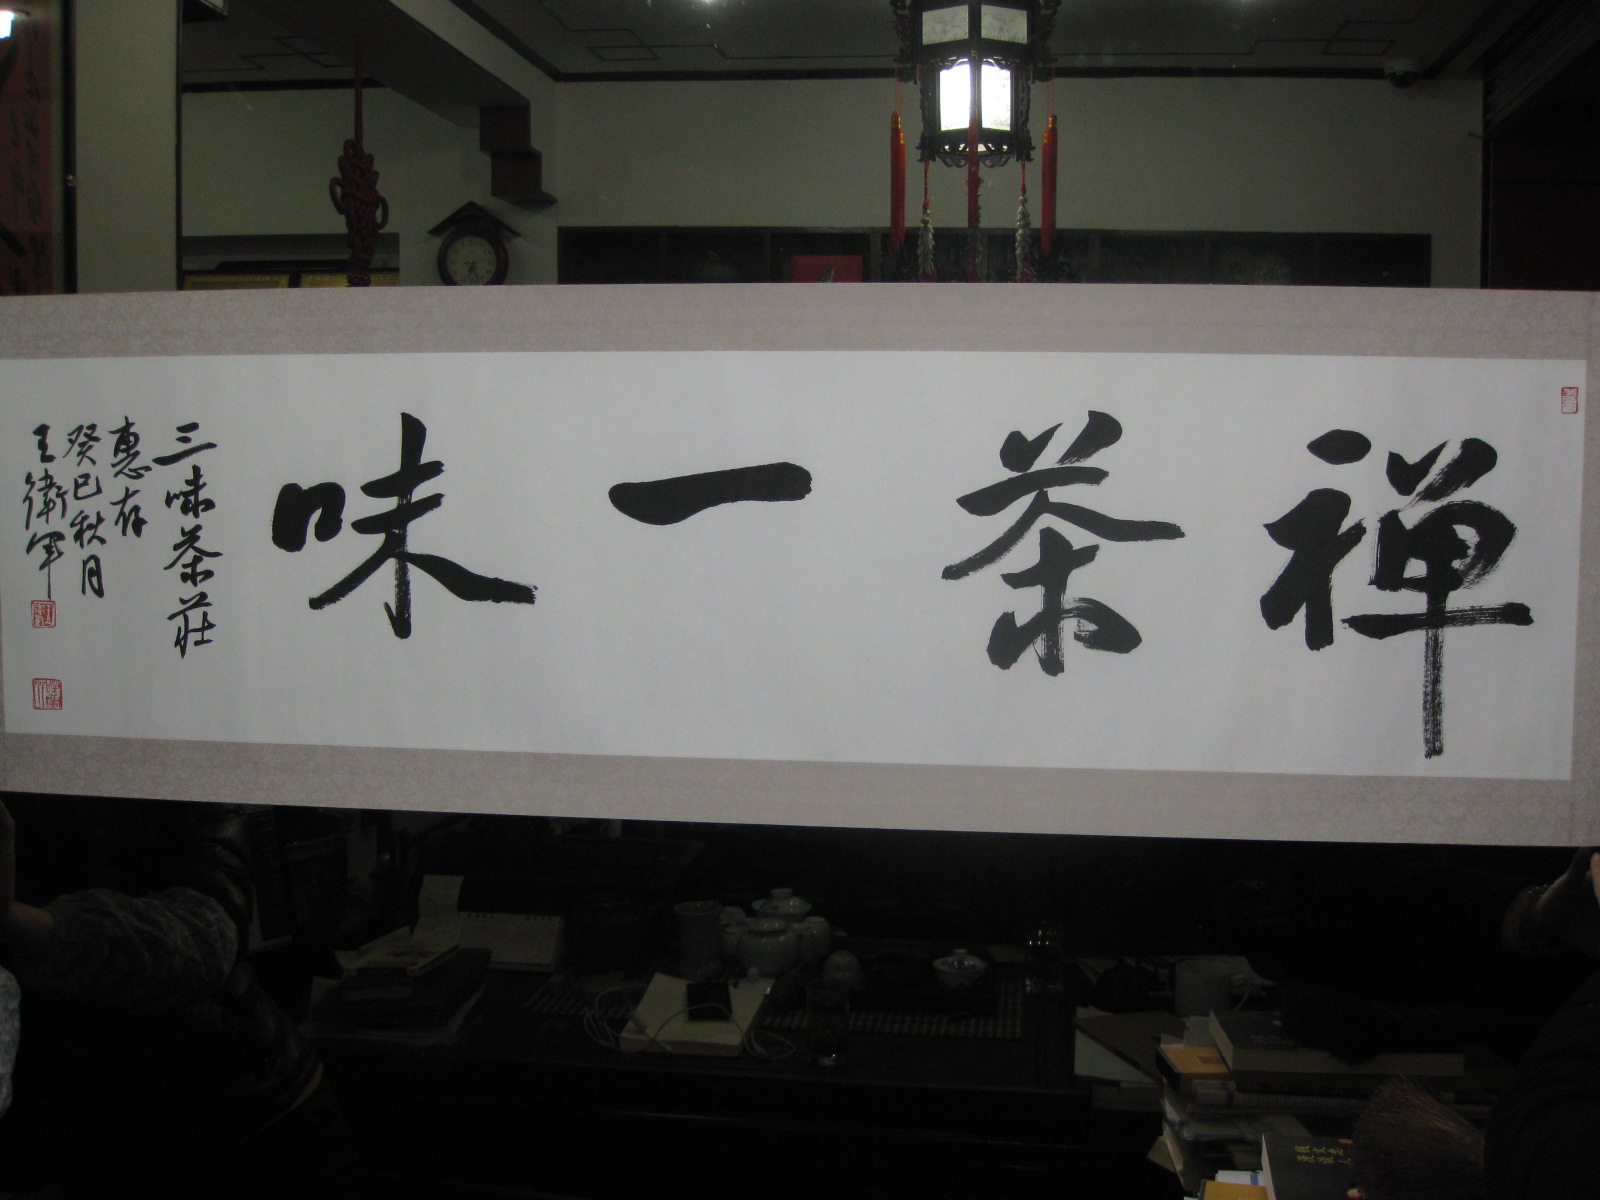 禅茶一味
三味茶莊
惠存
癸巳秋月
王衛軍